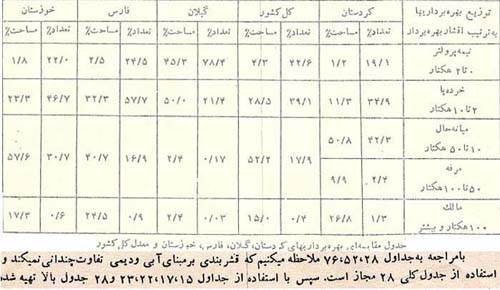 توزیع بهره‌برداریها به‌ترتیب اقشار بهره‌بردار کردستان کل کشور گیلان فارس خوزستان
تعداد٪ مساحت٪ تعداد٪ مساحت٪ تعداد٪ مساحت٪ تعداد٪ مساحت٪ تعداد٪ مساحت٪
نیمه پرولتر ۰ تا ۲ هکتار ۱۹/۱ ۱/۲ ۴۲/۶ ۴/۳ ۷۸/۴ ۴۵/۳ ۲۴/۵ ۲/۵ ۲۲/۰ ۱/۸
خرده‌پا ۲ تا ۱۰ هکتار ۳۴/۹ ۱۱/۳ ۳۹/۱ ۲۸/۵ ۲۱/۴ ۵۰/۰ ۵۷/۷ ۳۲/۳ ۴۶/۷ ۲۳/۳
میانه‌حال ۱۰ تا ۵۰ هکتار ۴۲/۳ ۵۰/۸
۱۷/۹ ۵۲/۲ ۰/۱۷ ۲/۴ ۱۶/۹ ۴۰/۷ ۳۰/۷ ۵۷/۶
مرفه ۵۰ تا ۱۰۰ هکتار ۲/۴ ۹/۹
مالک ۱۰۰ هکتار و بیشتر ۱/۳ ۲۶/۸ ۰/۴ ۱۵/۰ ۰/۰۳ ۲/۴ ۰/۹ ۲۴/۵ ۰/۶ ۱۷/۳
جدول مقایسه‌ای بهره‌برداریهای کردستان، گیلان، فارس، خوزستان و معدل کل کشور
بامراجعه به جداول ۷۶،۵۲،۲۸ ملاحظه میکنیم که قشربندی برمبنای آبی ودیمی تفاوت‌چندانی نمیکند و
استفاده از جدول کلی ۲۸ مجاز است. سپس با استفاده از جداول ۲۳،۲۲،۱۷،۱۵ و ۲۸ جدول بالا تهیه شده